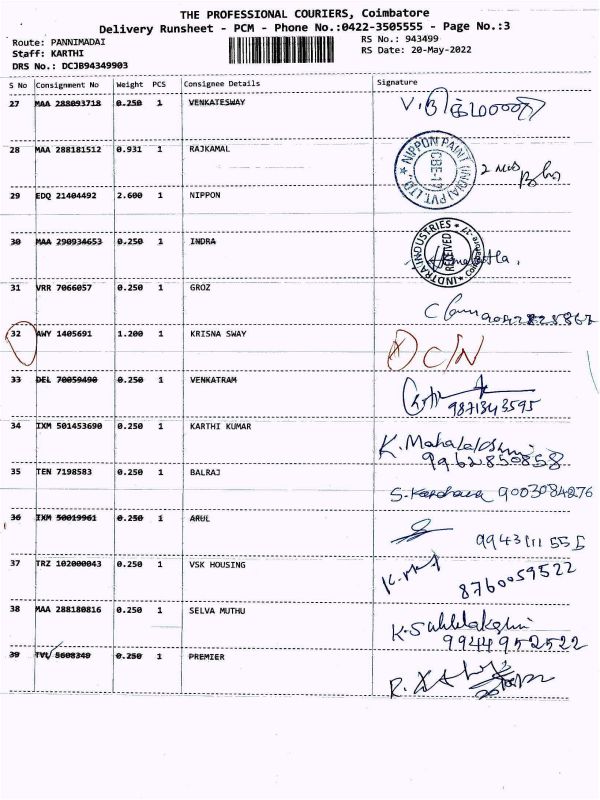 THE PROFESSIONAL COURIERS, Coimbatore
Delivery Runsheet - PCM - Phone No.:0422-3505555 - Page No.:3
Route: PANNIMADAI
Staff: KARTHI
DRS No.: DCJB94349903
RS No.: 943499
RS Date: 20-May-2022
S No Consignment No Weight PCS Consignee Details Signature
27 MAA 288093718 0.250 1 VENKATESWAY
28 MAA 288181512 0.931 1 RAJKAMAL
NIPPON PAINT (INDIA) PVT. LTD.
CBE-17
29 EDQ 21404492 2.600 1 NIPPON
30 MAA 290934653 0.250 1 INDRA
INDTRA INDUSTRIES
RECEIVED
31 VRR 7066057 0.250 1 GROZ
32 AWY 1405691 1.200 1 KRISNA SWAY C/N
33 DEL 70059490 0.250 1 VENKATRAM
9871343595
34 IXM 501453690 0.250 1 KARTHI KUMAR K. Mahalakshmi
9962850858
35 TEN 7198583 0.250 1 BALRAJ 9003084276
36 IXM 50019961 0.250 1 ARUL
37 TRZ 102000043 0.250 1 VSK HOUSING
8760059522
38 MAA 288180816 0.250 1 SELVA MUTHU
9944952522
39 TVL 5608349 0.250 1 PREMIER